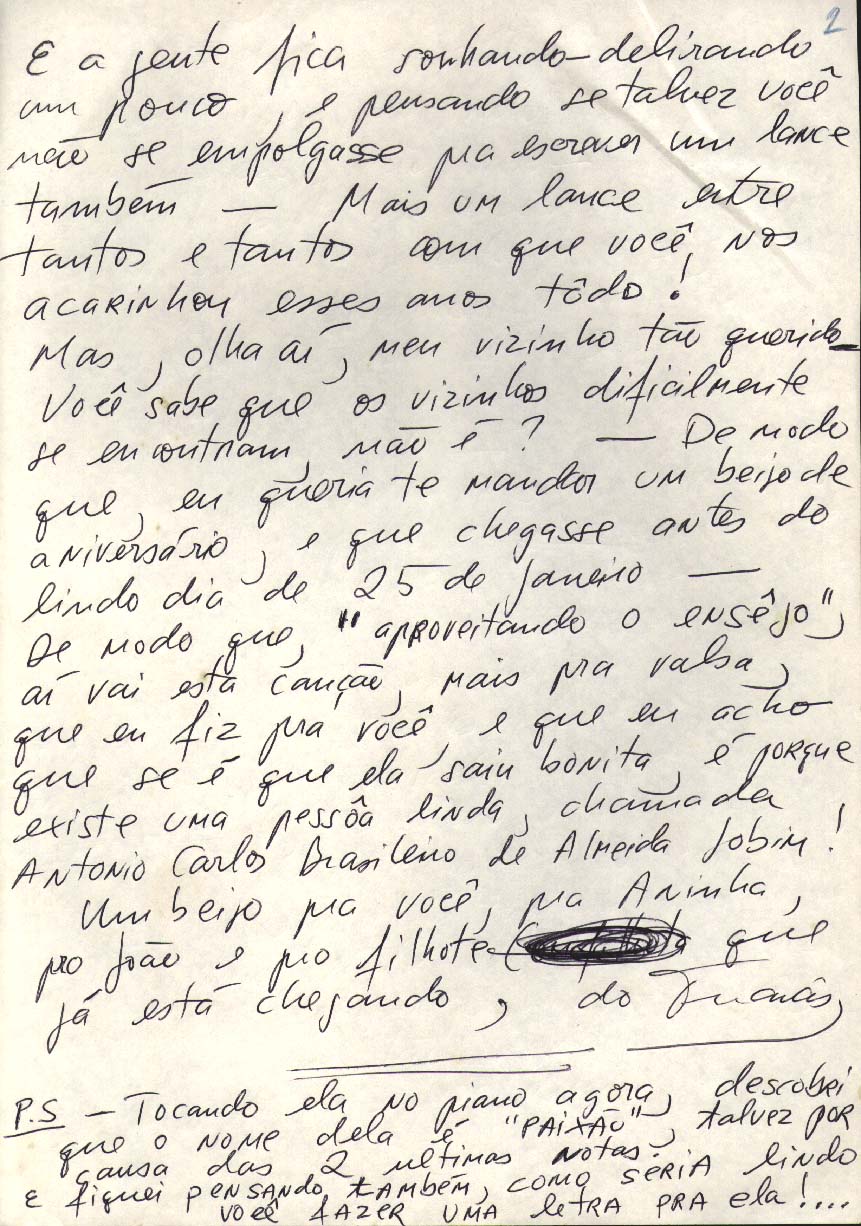 2
E a gente fica sonhando-delirando
um pouco, e pensando se talvez você
não se empolgasse pra escrever um lance
também — Mais um lance entre
tantos e tantos com que você, nos
acarinhou esses anos tôdo!
Mas, olha aí, meu vizinho tão querido—
Você sabe que os vizinhos dificialmente
se encontram, não é? — De modo
que, eu queria te mandar um beijo de
aniversário, e que chegasse antes do
lindo dia de 25 de Janeiro —
De modo que, "aproveitando o ensêjo",
aí vai esta canção, mais pra valsa,
que eu fiz pra você, e que eu acho
que se é que ela saiu bonita, é porque
existe uma pessôa linda, chamada
Antonio Carlos Brasileiro de Almeida Jobim!
Um beijo pra você, pra Aninha,
pro João e pro filhote que
já está chegando, do
P.S — Tocando ela no piano agora, descobri
que o nome dela é "PAIXÃO", talvez por
causa das 2 ultimas notas.
E fiquei pensando também, como seria lindo
você fazer uma letra pra ela!....